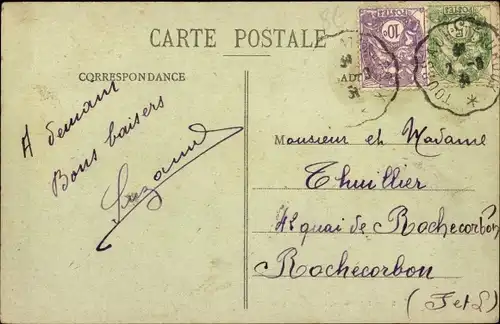 CARTE POSTALE
CORRESPONDANCE
A demain
Bons baisers
Suzanne
10c
POSTES
TOURS
Monsieur et Madame
Thuillier
quai de Rochecorbon
Rochecorbon
(I et L)